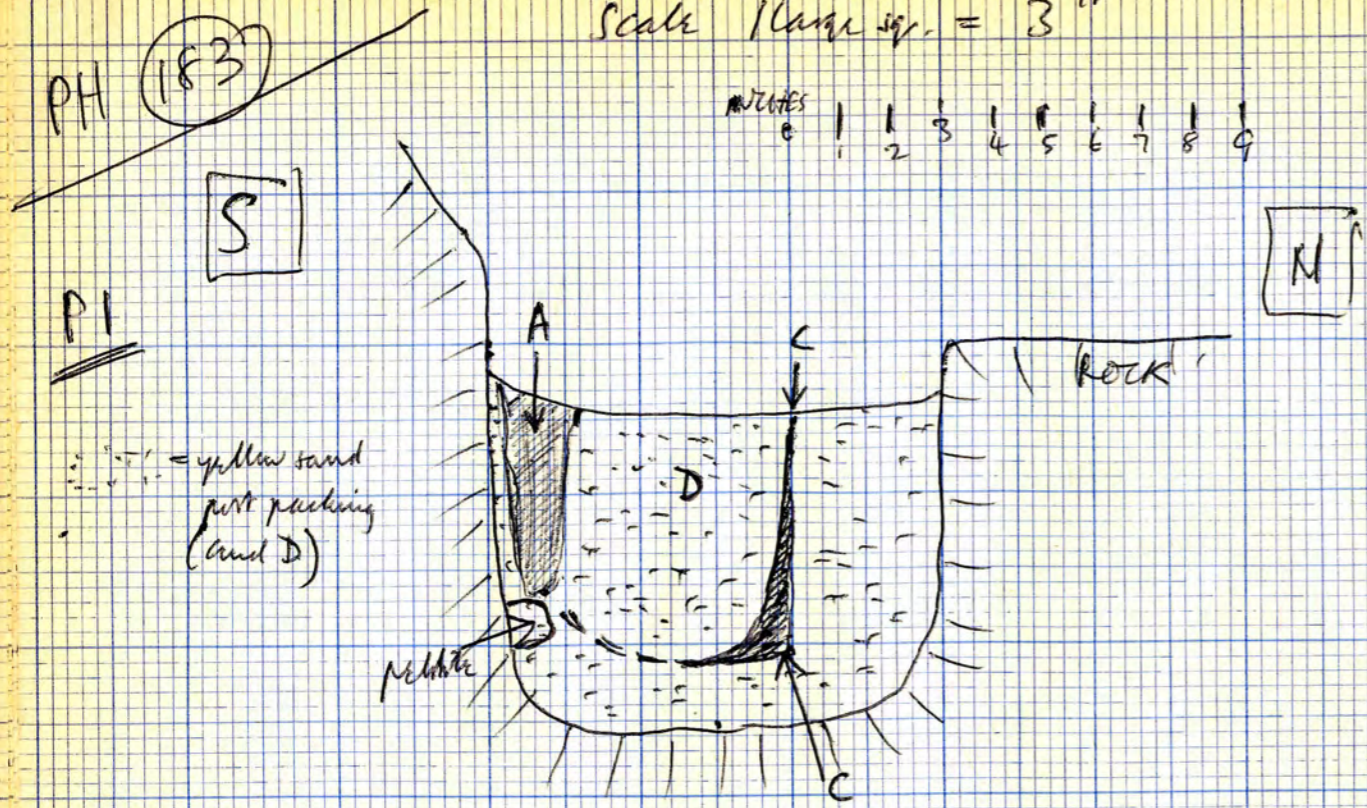 Scale 1 large sq. = 3"
PH 183
INCHES
0 1 2 3 4 5 6 7 8 9
S
N
P1
A
C
ROCK
= yellow sand
post packing
(and D)
D
pebble
C